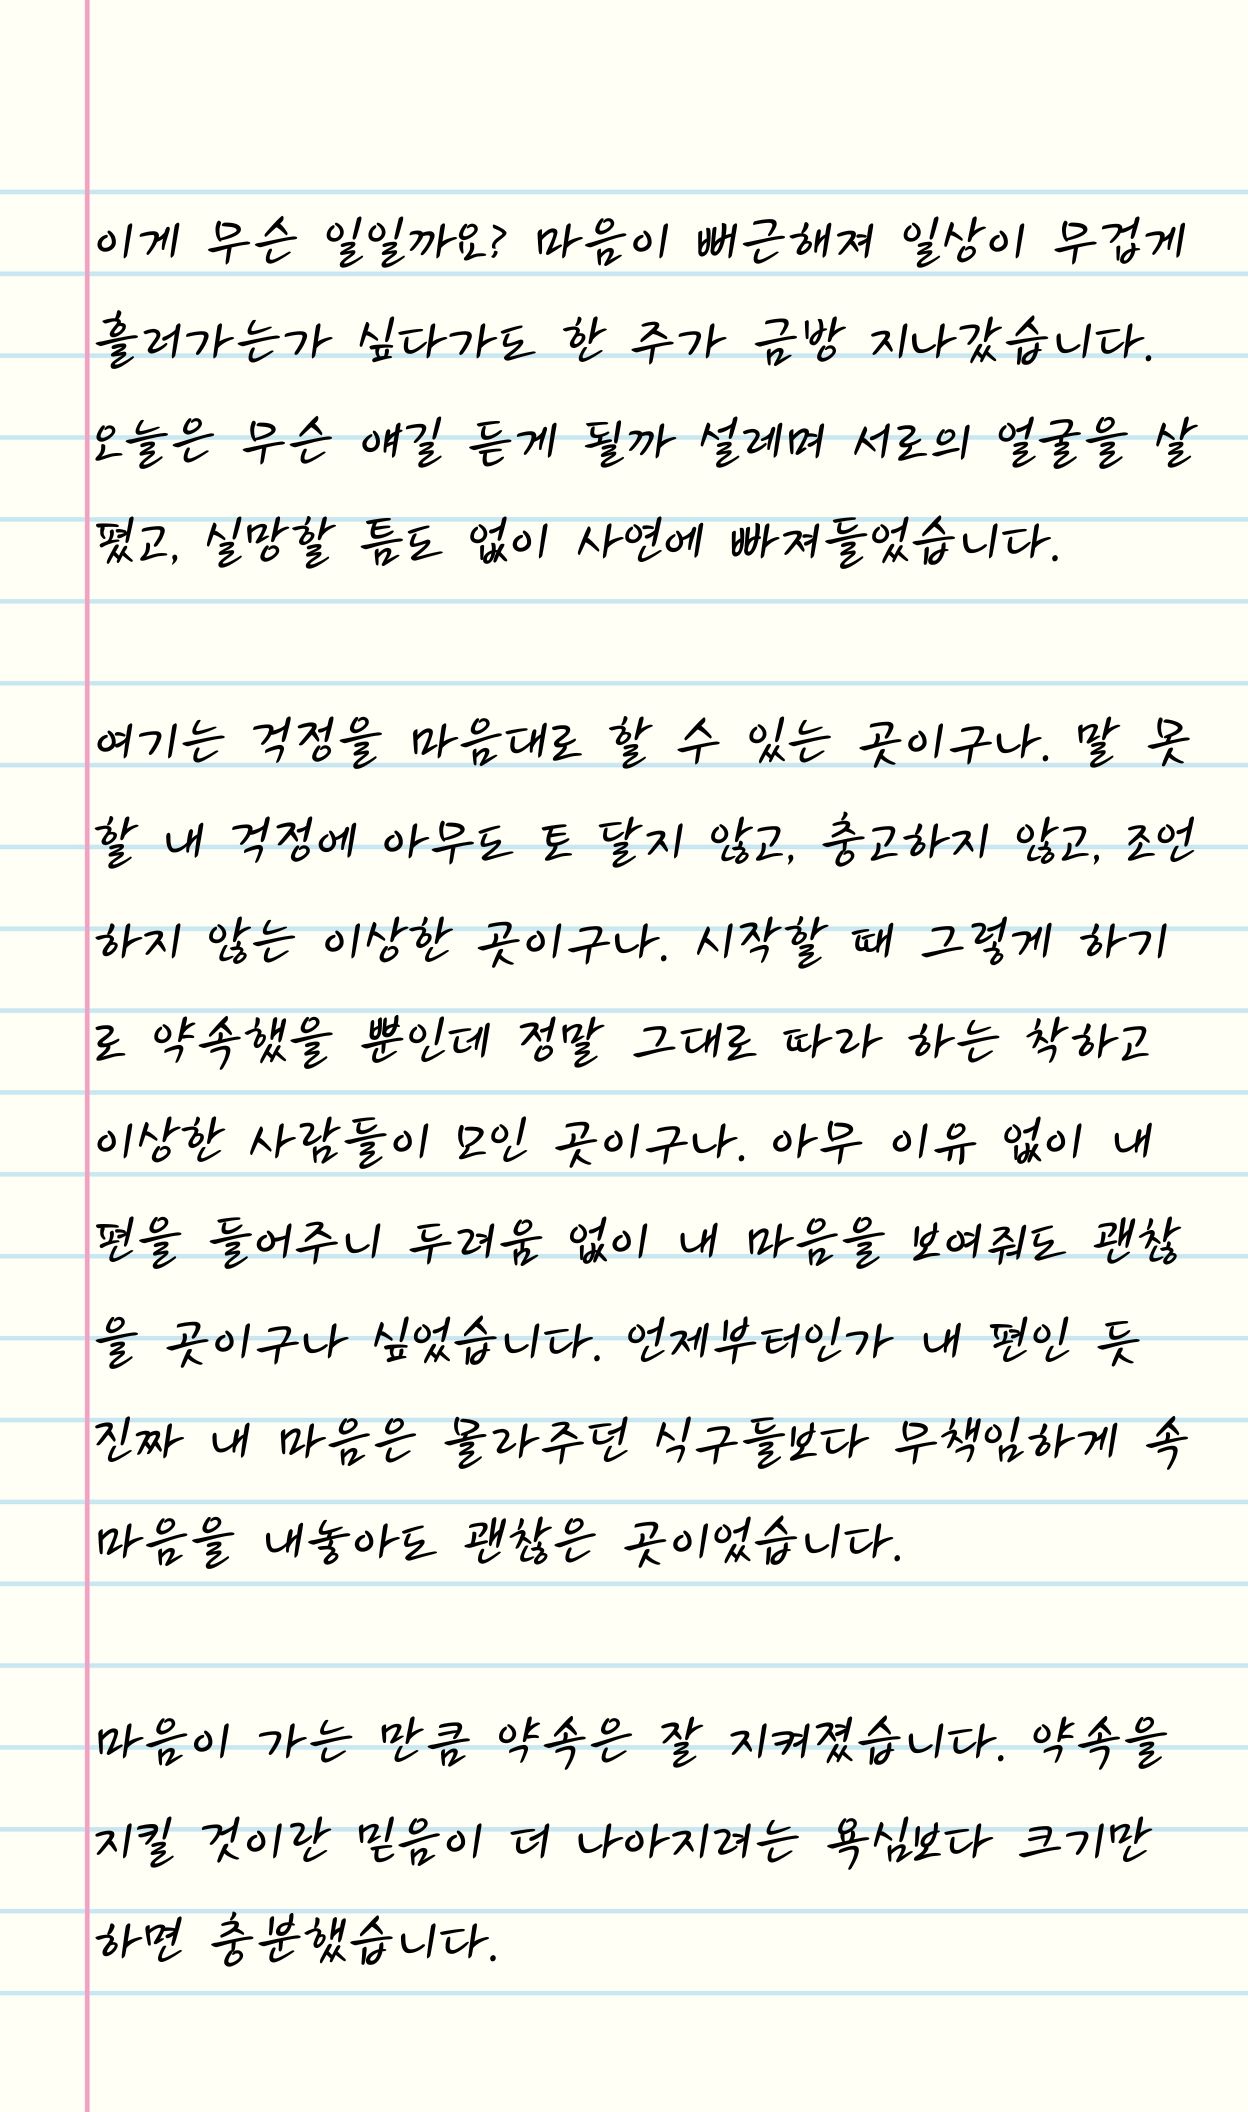 이게 무슨 일일까요? 마음이 뻐근해져 일상이 무겁게
흘러가는가 싶다가도 한 주가 금방 지나갔습니다.
오늘은 무슨 얘길 듣게 될까 설레며 서로의 얼굴을 살
폈고, 실망할 틈도 없이 사연에 빠져들었습니다.
여기는 걱정을 마음대로 할 수 있는 곳이구나. 말 못
할 내 걱정에 아무도 토 달지 않고, 충고하지 않고, 조언
하지 않는 이상한 곳이구나. 시작할 때 그렇게 하기
로 약속했을 뿐인데 정말 그대로 따라 하는 착하고
이상한 사람들이 모인 곳이구나. 아무 이유 없이 내
편을 들어주니 두려움 없이 내 마음을 보여줘도 괜찮
을 곳이구나 싶었습니다. 언제부터인가 내 편인 듯
진짜 내 마음은 몰라주던 식구들보다 무책임하게 속
마음을 내놓아도 괜찮은 곳이었습니다.
마음이 가는 만큼 약속은 잘 지켜졌습니다. 약속을
지킬 것이란 믿음이 더 나아지려는 욕심보다 크기만
하면 충분했습니다.